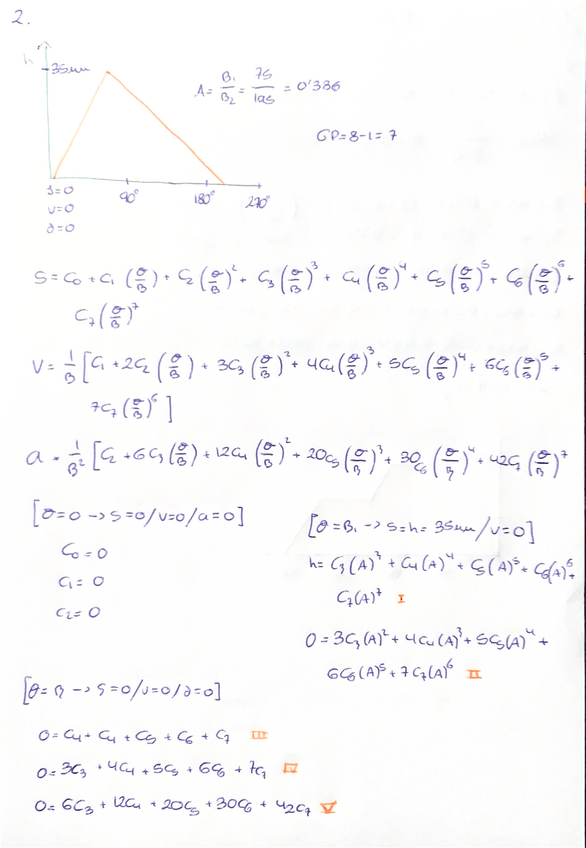 2.
h
35mm
A = B₁/B₂ = 75/195 = 0'386
GP = 8-1 = 7
s=0
v=0
a=0
90° 180° 270°
S = C₀ + C₁ (θ/B) + C₂ (θ/B)² + C₃ (θ/B)³ + C₄ (θ/B)⁴ + C₅ (θ/B)⁵ + C₆ (θ/B)⁶ +
C₇ (θ/B)⁷
V = 1/B [C₁ + 2C₂ (θ/B) + 3C₃ (θ/B)² + 4C₄ (θ/B)³ + 5C₅ (θ/B)⁴ + 6C₆ (θ/B)⁵ +
7C₇ (θ/B)⁶]
a = 1/B² [C₂ + 6C₃ (θ/B) + 12C₄ (θ/B)² + 20C₅ (θ/B)³ + 30C₆ (θ/B)⁴ + 42C₇ (θ/B)⁷
[θ=0 → s=0/v=0/a=0]
C₀ = 0
C₁ = 0
C₂ = 0
[θ=B₁ → s=h= 35mm/v=0]
h = C₃(A)³ + C₄(A)⁴ + C₅(A)⁵ + C₆(A)⁶ +
C₇(A)⁷ I
0 = 3C₃(A)² + 4C₄(A)³ + 5C₅(A)⁴ +
6C₆(A)⁵ + 7C₇(A)⁶ II
[θ=B → s=0/v=0/a=0]
0 = C₄ + C₄ + C₅ + C₆ + C₇ III
0 = 3C₃ + 4C₄ + 5C₅ + 6C₆ + 7C₇ IV
0 = 6C₃ + 12C₄ + 20C₅ + 30C₆ + 42C₇ V